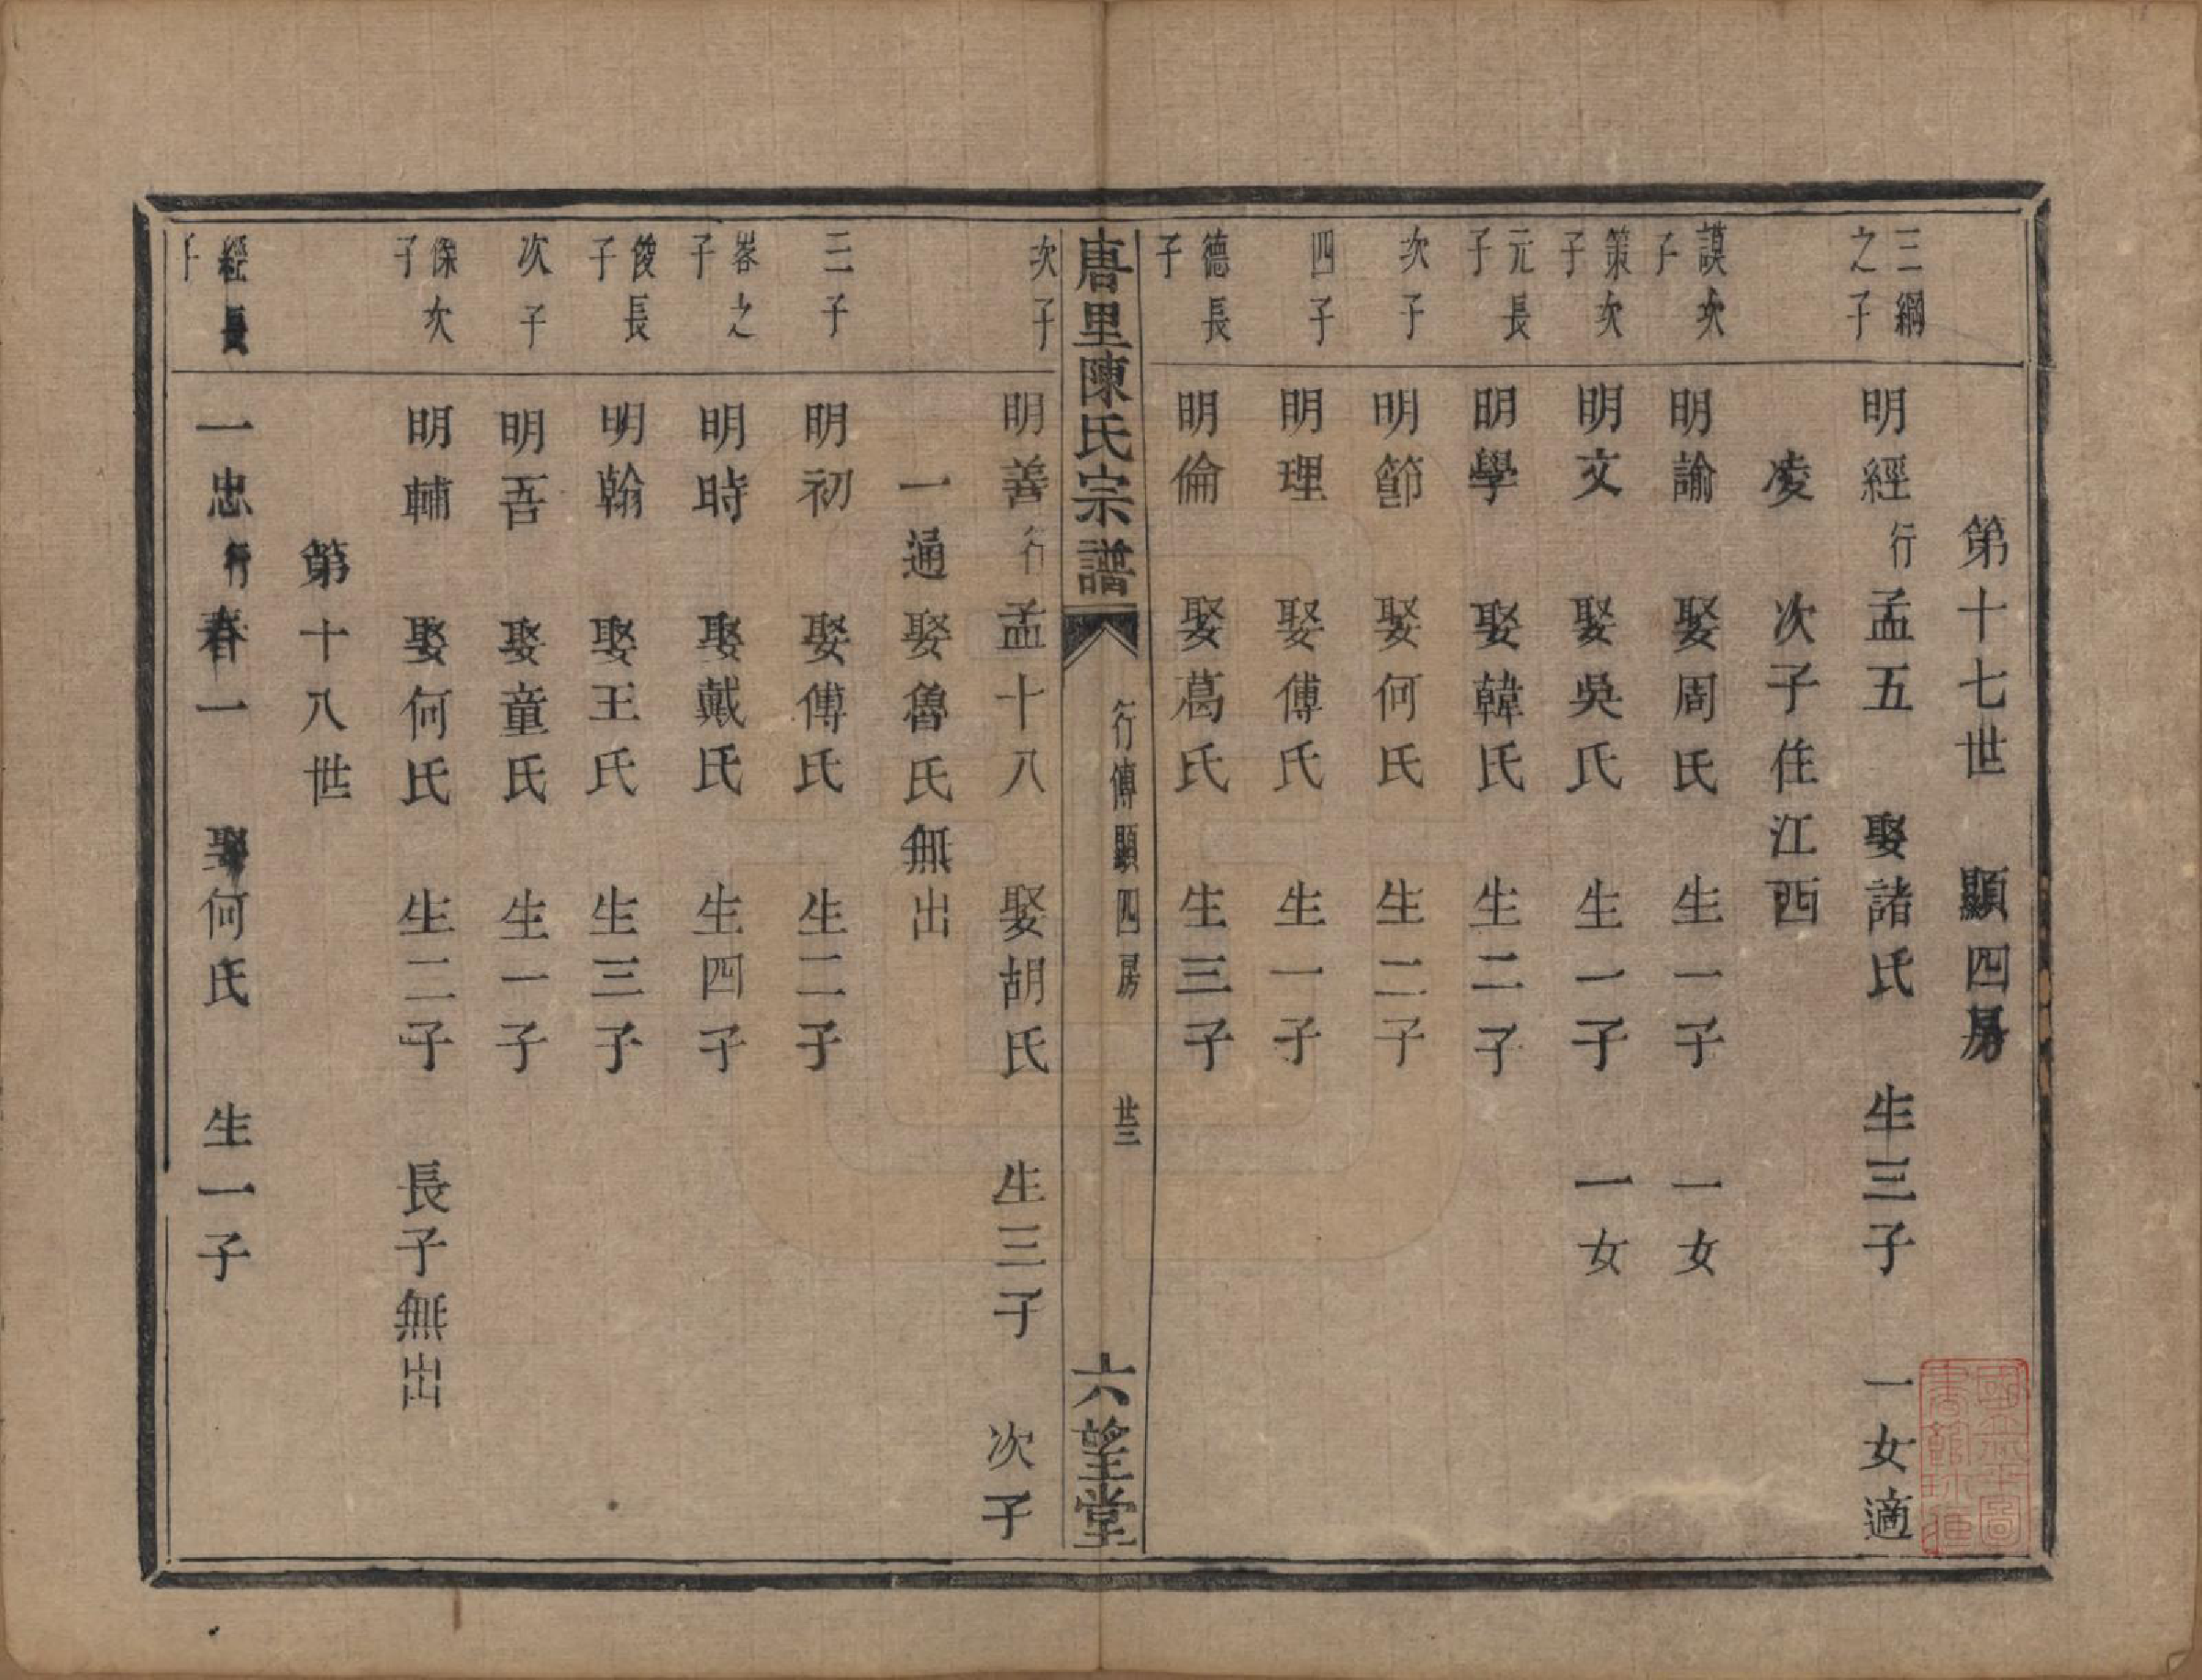 第十七世　顯四房
三綱之子
明經行孟五　娶諸氏　生三子　一女適
凌　次子住江西
謨次子
明諭　娶周氏　生一子　一女
策次子
明文　娶吳氏　生一子　一女
元長子
明學　娶韓氏　生二子
次子
明節　娶何氏　生二子
四子
明理　娶傅氏　生一子
德長子
明倫　娶葛氏　生三子
唐里陳氏宗譜　行傳顯四房　廿三　六望堂
次子
明善行孟十八　娶胡氏　生三子　次子
一通娶魯氏無出
三子
明初　娶傅氏　生二子
峯之子
明時　娶戴氏　生四子
俊長子
明翰　娶王氏　生三子
次子
明吾　娶童氏　生一子
傑次子
明輔　娶何氏　生二子　長子無出
第十八世
經長子
一忠行春一　娶何氏　生一子